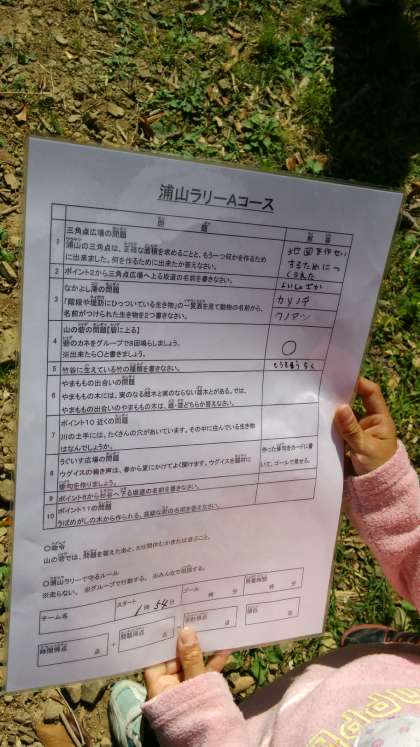 浦山ラリーAコース
問題
答案
1
三角点広場の問題
浦山の三角点は、正確な面積を求めることと、もう一つ何かを作るため
に出来ました。何を作るために出来たか答えなさい。
地図を作せい
するためにつ
くられた
2
ポイント2から三角点広場へ上る坂道の名前を書きなさい。
よいしょざか
3
なかよし湯の問題
「階段や堤防にひっついている生き物」の一覧表を見て動物の名前から、
名前がつけられた生き物を2つ書きなさい。
カリノテ
ウノアシ
4
山の砦の問題【砦に上る】
砦のカネをグループで8回鳴らしましょう。
※出来たら○と書きましょう。
○
5
竹谷に生えている竹の種類を書きなさい。
もうそうちく
6
やまももの出合いの問題
やまももの木には、実のなる雌木と実のならない雄木とがある。では、
やまももの出合いのやまももの木は、雌・雄どちらか答えなさい。
7
ポイント10近くの問題
川の土手には、たくさんの穴があいています。その中に住んでいる生き物
はなんでしょうか。
8
うぐいす広場の問題
ウグイスの鳴き声は、春から夏にかけてよく聞けます。ウグイスを題材に
俳句を作りましょう。
作った俳句をカードに書
いて、ゴールで見せる。
9
ポイント8から竹谷へ下る坂道の名前を書きなさい。
10
ポイント11の問題
うばめがしの木から作られる、高級な炭の名前を答えなさい。
○指令
山の砦では、問題を答えたあと、
○浦山ラリーで守るルール
※走らない。 ※グループで行動する。 ※みんなで相談する。
チーム名
スタート
1時54分
ゴール
時 分
所要時間
時 分
時間得点
点
+
問題得点
点
=
合計得点
点
順位
位